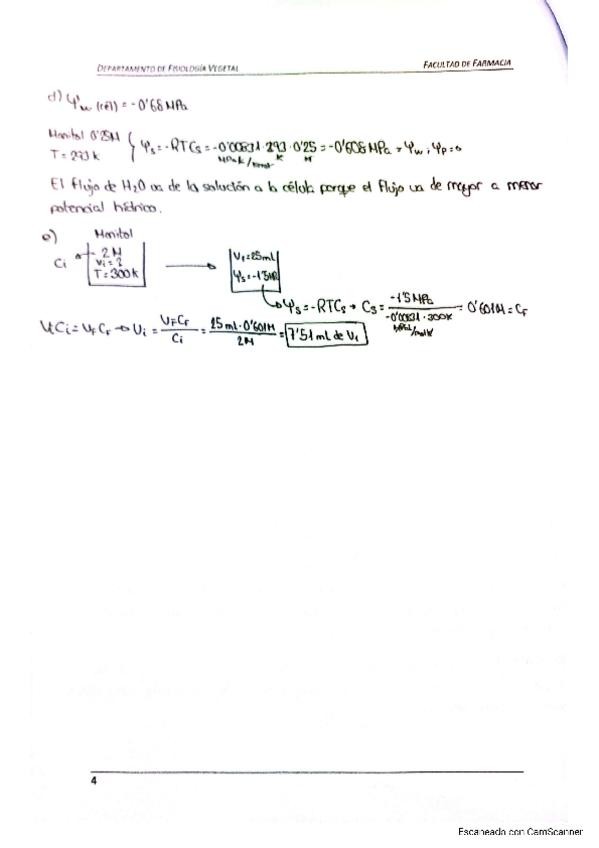 DEPARTAMENTO DE FISIOLOGÍA VEGETAL
FACULTAD DE FARMACIA
d) Ψw (cél) = -0'68 MPa
Manitol 0'25M
T = 293 K
Ψs = -RTCs = -0'00831 · 293 · 0'25 = -0'608 MPa = Ψw ; Ψp = 0
K M
El flujo de H2O va de la solución a la célula porque el flujo va de mayor a menor
potencial hídrico.
e) Manitol
Ci
2 M
Vi = ?
T = 300 K
Vf = 25mL
Ψs = -1'5MPa
Ψs = -RTCs → Cs = -1'5 MPa / -0'00831 · 300K = 0'601M = Cf
ViCi = VfCf → Vi = VfCf / Ci = 25 ml · 0'601M / 2M = 7'51 ml de Vi
4
Escaneado con CamScanner